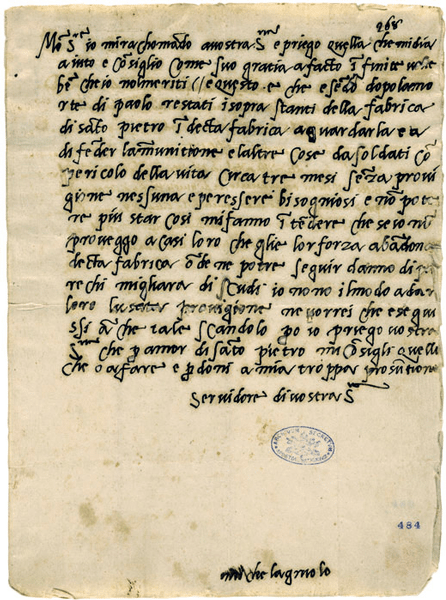 268
Mo s.re io mi rachomando a vostra S.ria e priego quella che mi dia
aiuto e cōsiglio come suo gratia a facto ī finite volte
bē che io nol meriti // e questo e che esēdo dopo la mo
rte di paolo restati i sopra stanti della fabrica
di sāto pietro ī decta fabrica a guardarla e a
difēder la munitione e l altre cose da soldati cō
pericolo della vita circa tre mesi sēza provi
gione nessuna e per essere bisogniosi e nō pote
re piu star cosi mi fanno ī tēdere che se io nō
proveggo a casi loro che gli e lor forza abādona
decta fabrica ōde ne potre seguir danno di pa
rechi migliara di scudi io nō ō il modo a dar
loro provigione ne vorrei che seguis
ssi tale scādolo po io priego vostra
S.ria che p amor di sāto pietro mi cōsigli quello
che o a fare e p doni a mia troppa prosūtione
Servidore di vostra S.
ARCHIVUM SECRETUM
484
michelagniolo